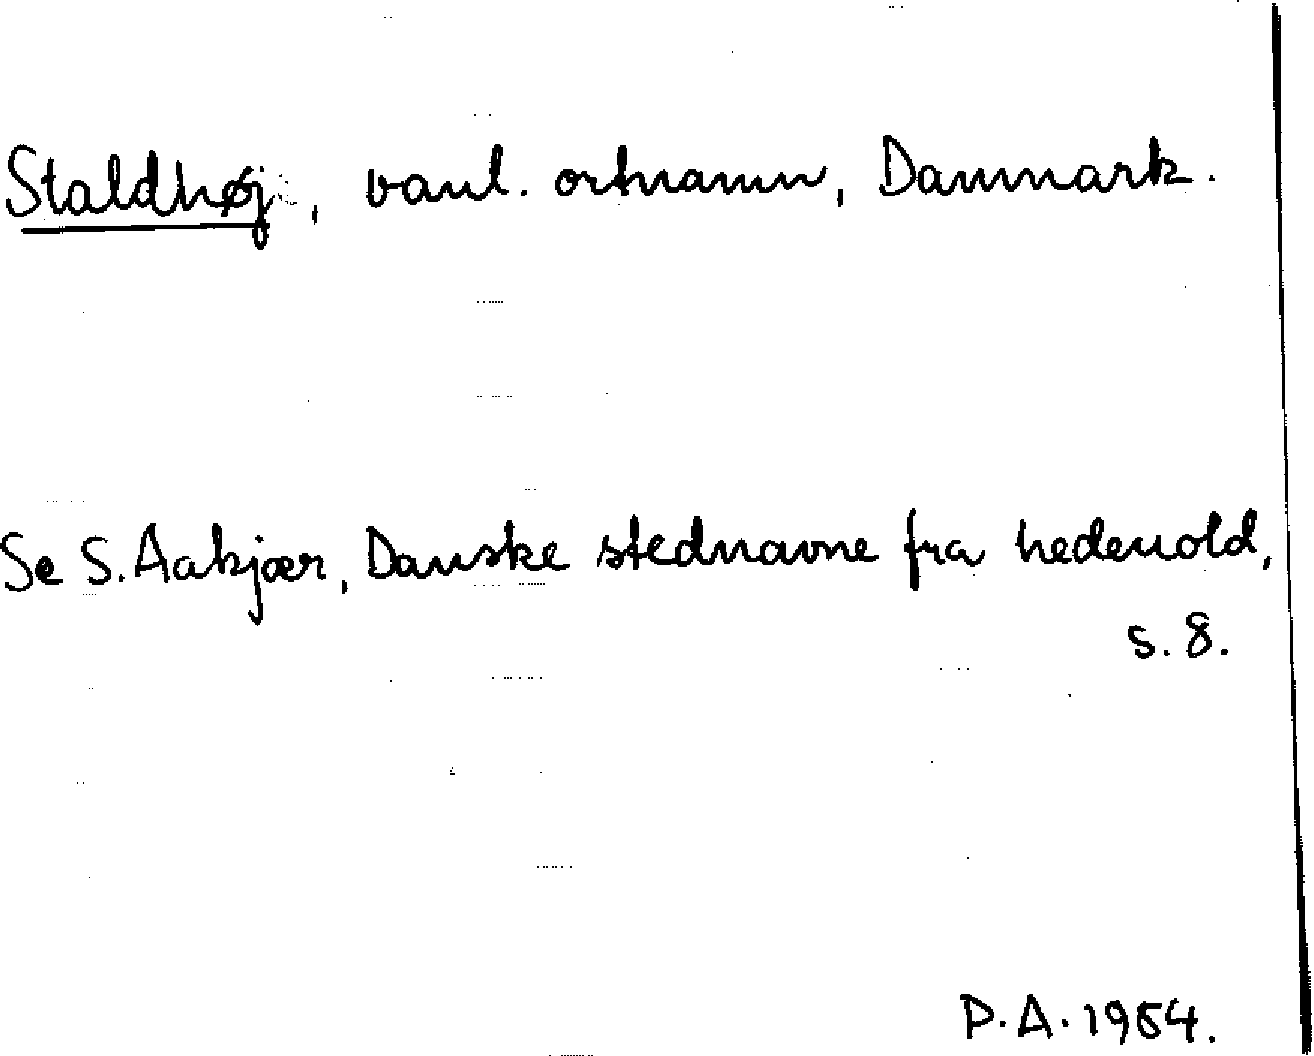 Staldhøj, vanl. ortnamn, Danmark.
Se S. Aakjær, Danske stednavne fra hedenold,
s. 8.
P.A. 1964.